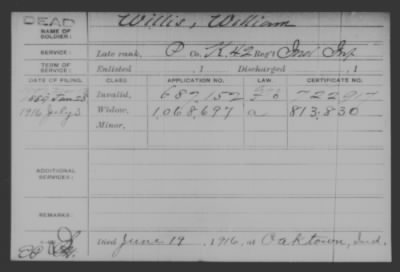 DEAD
NAME OF SOLDIER:
Willis, William
SERVICE:
Late rank, P Co. K, 42 Reg't Ind Inf
TERM OF SERVICE:
Enlisted , 1 Discharged , 1
DATE OF FILING. CLASS. APPLICATION NO. LAW. CERTIFICATE NO.
Invalid, 687,152
1916 July 3 Widow, 1,068,697 a 813,830
Minor,
ADDITIONAL SERVICES:
REMARKS:
Died June 19, 1916, at Oaktown, Ind.